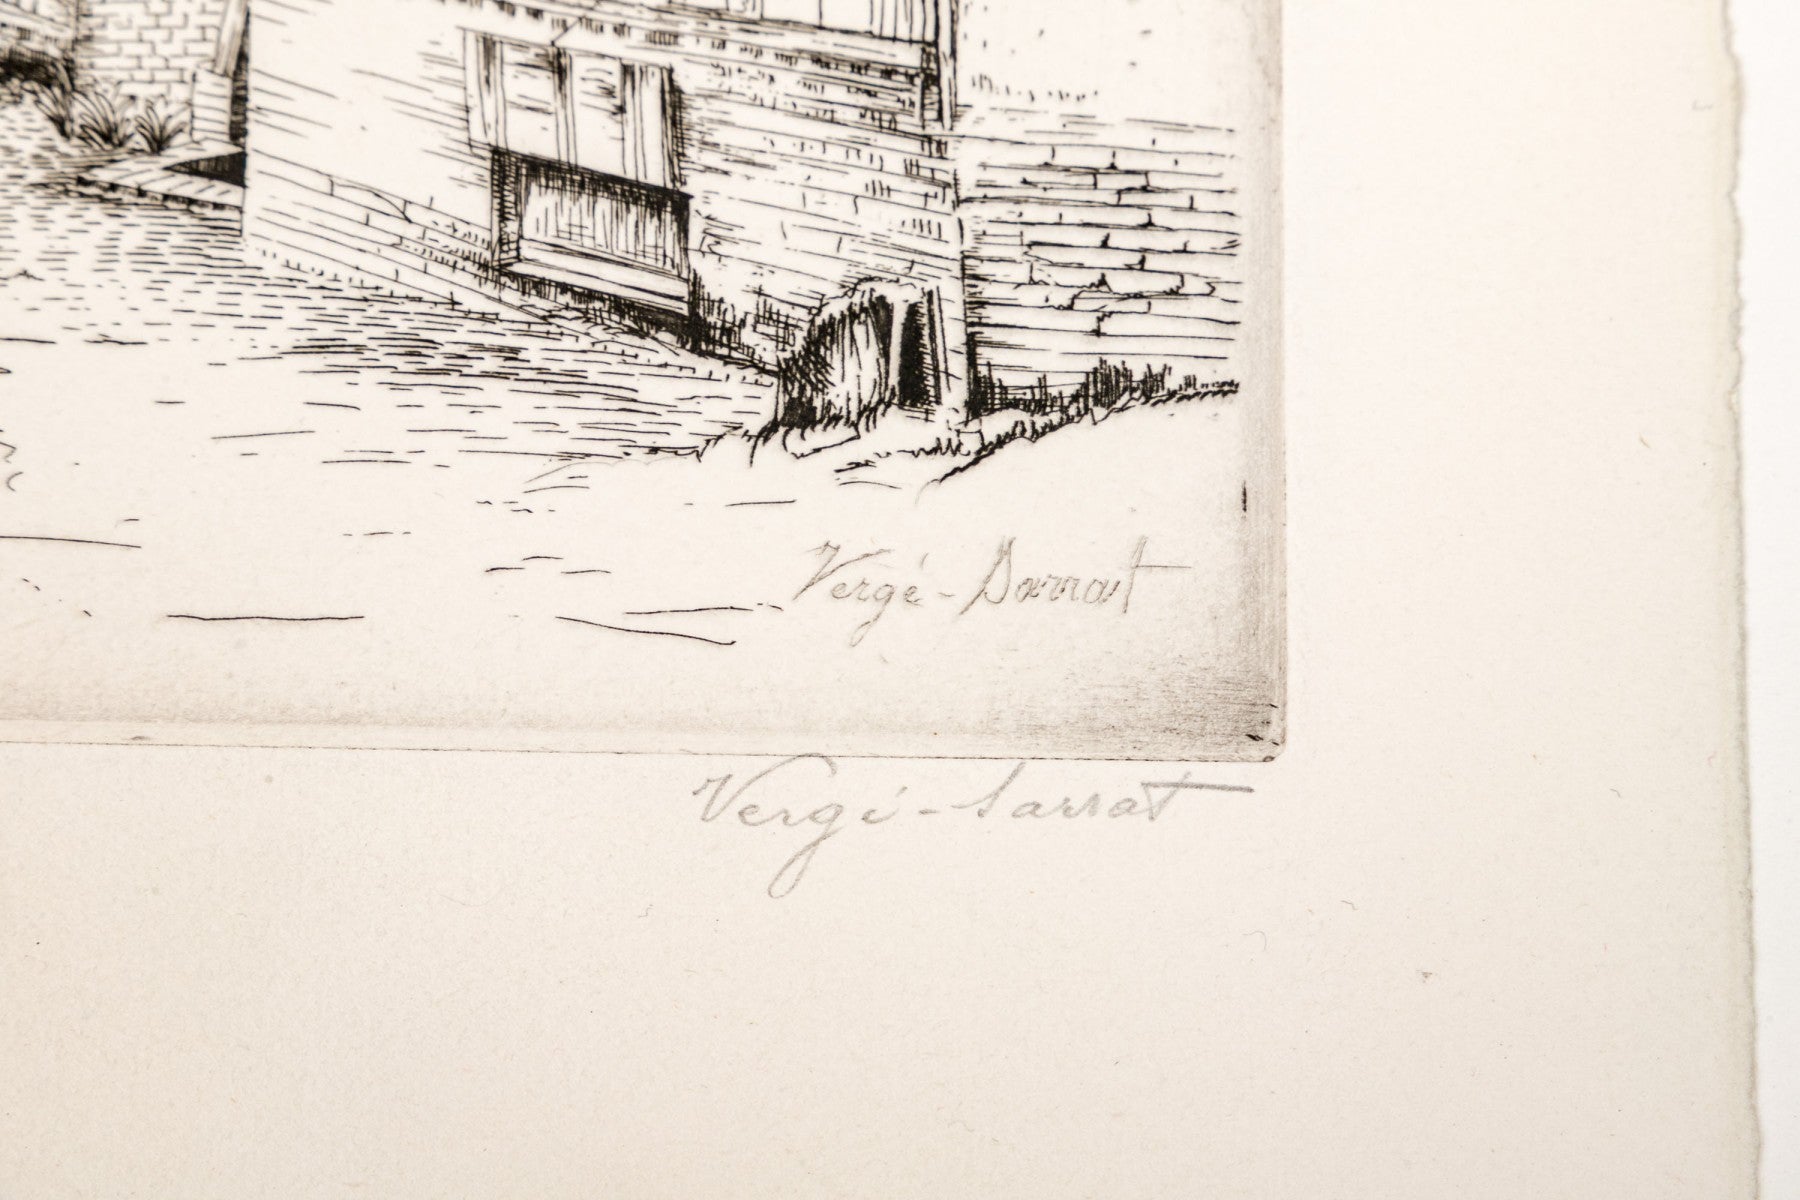 Vergé-Sarrat
Vergé-Sarrat